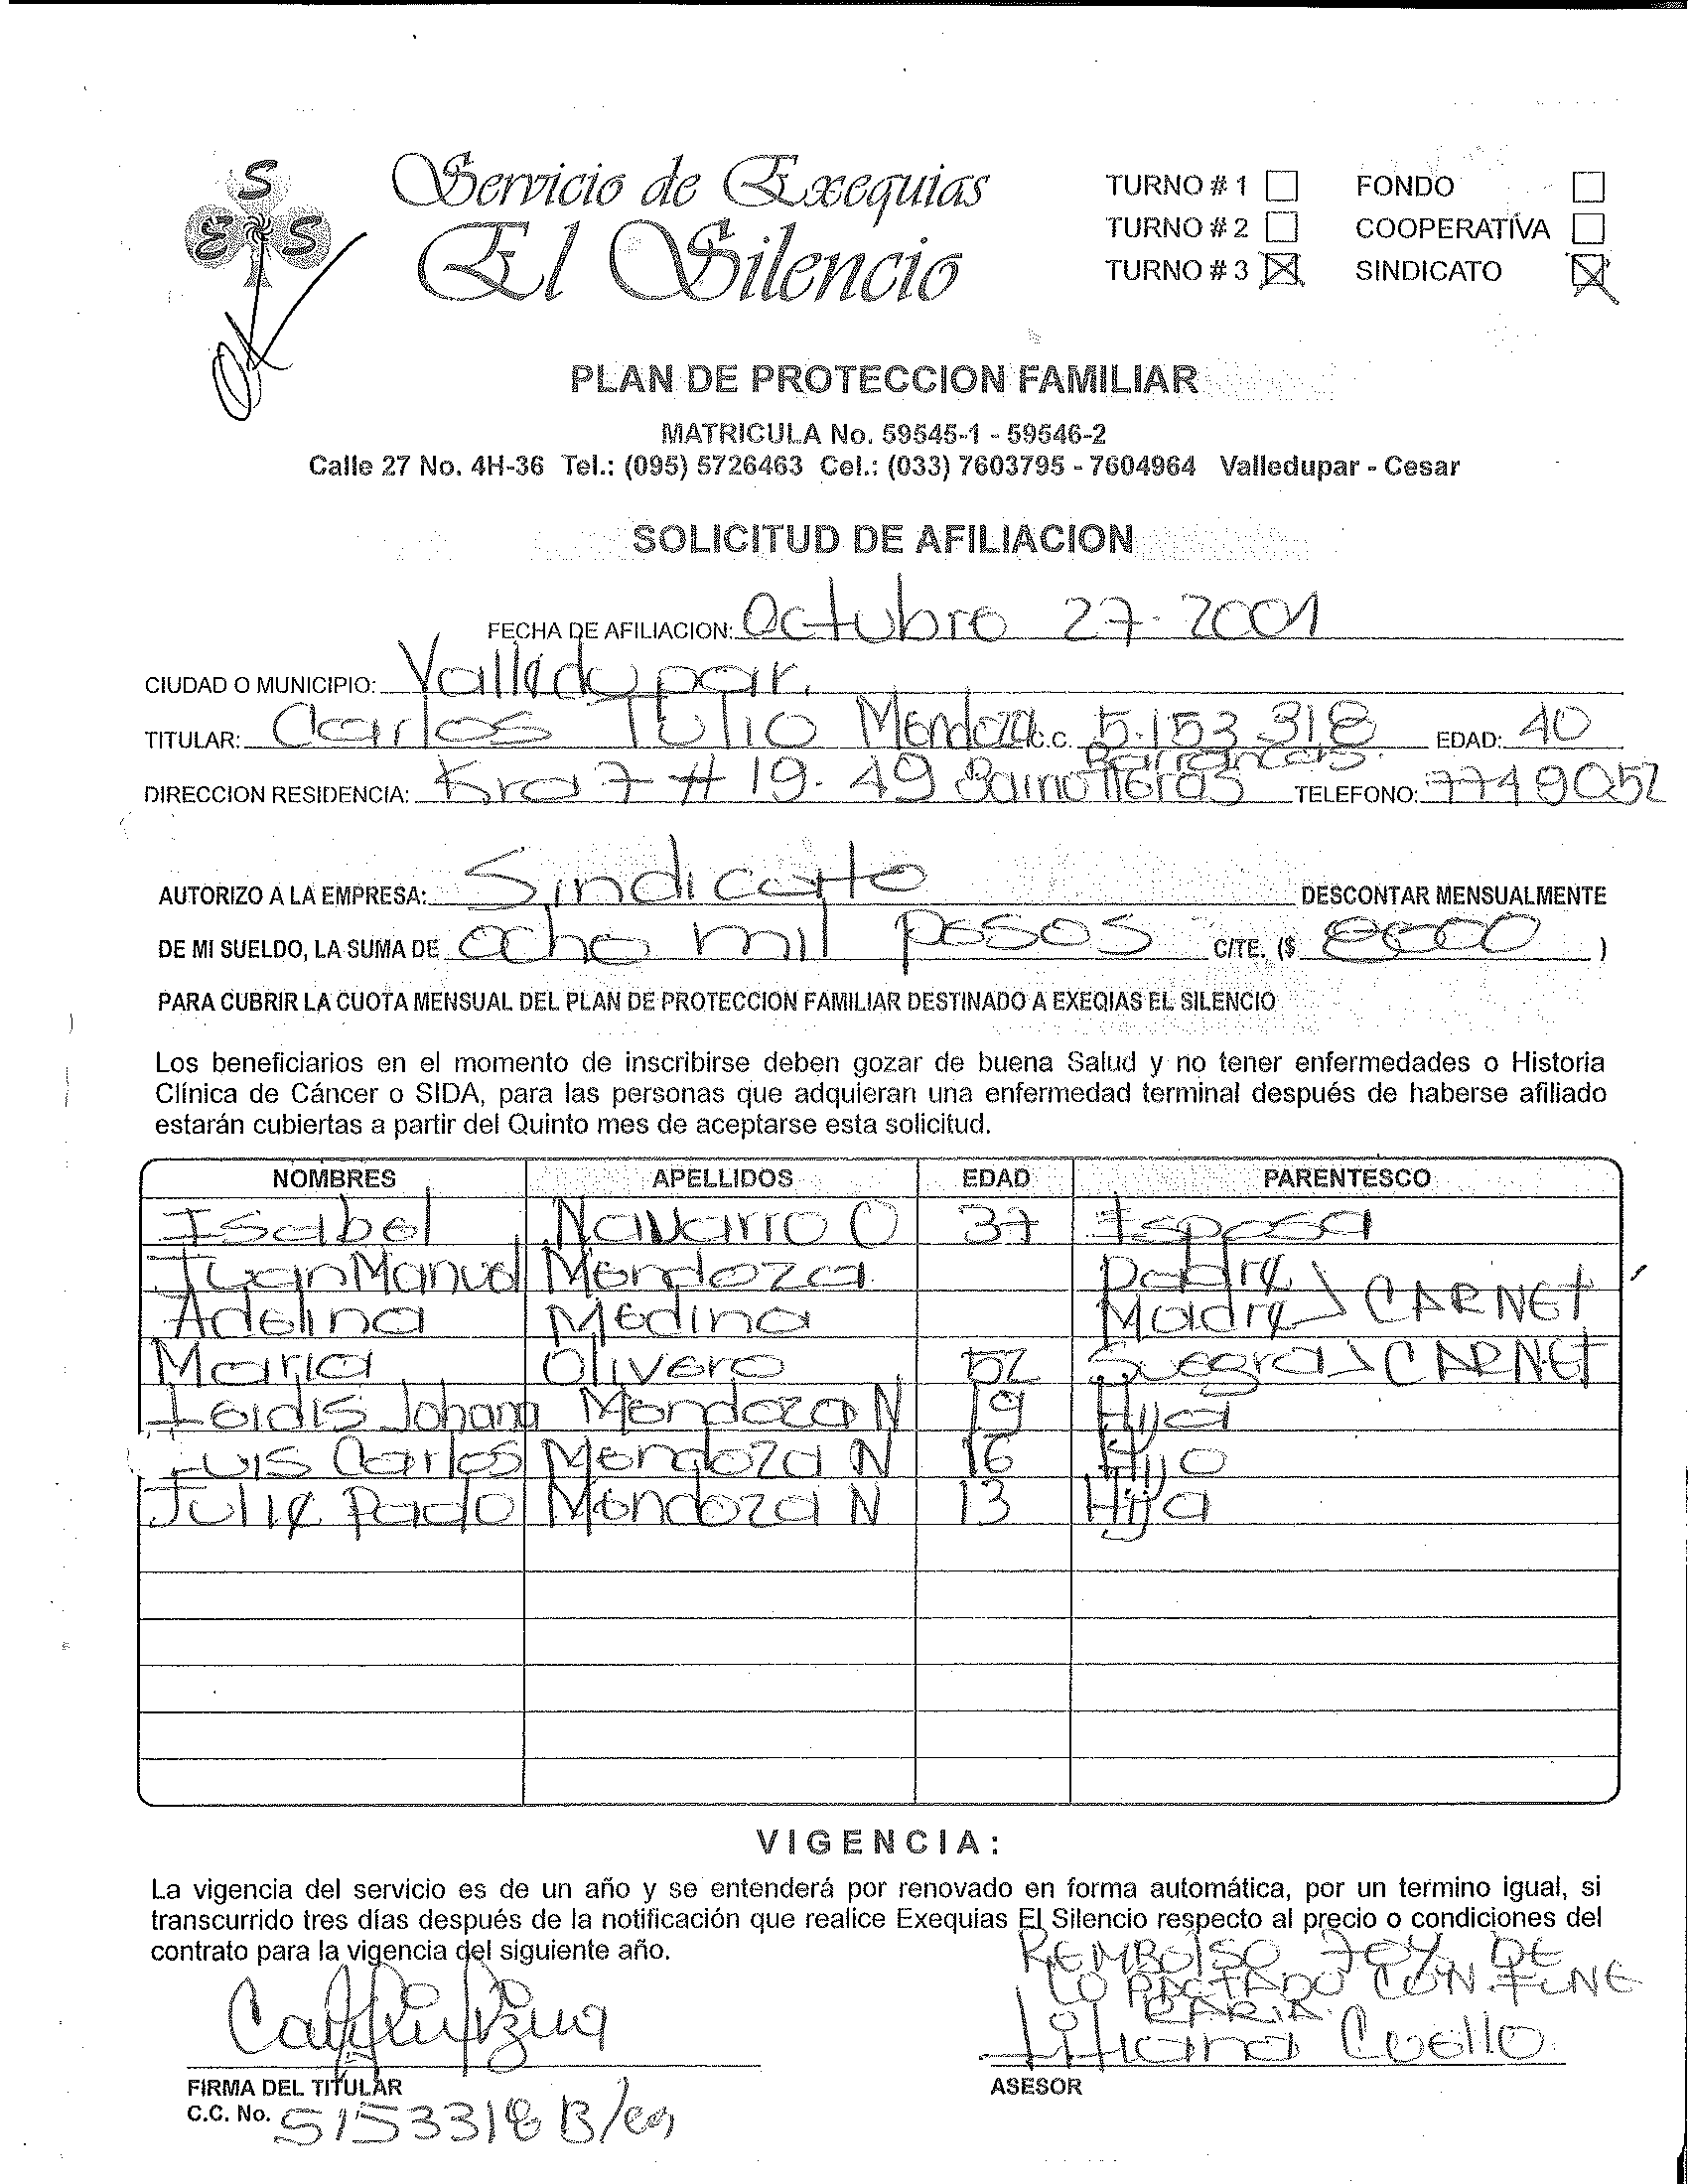 S
E S
OK
Servicio de Exequias
El Silencio
TURNO # 1 FONDO
TURNO # 2 COOPERATIVA
TURNO # 3 SINDICATO
PLAN DE PROTECCION FAMILIAR
MATRICULA No. 59545-1 - 59546-2
Calle 27 No. 4H-36 Tel.: (095) 5726463 Cel.: (033) 7603795 - 7604964 Valledupar - Cesar
SOLICITUD DE AFILIACION
FECHA DE AFILIACION: Octubre 27-2001
CIUDAD O MUNICIPIO: Valledupar.
TITULAR: Carlos Tulio Mendoza C.C. 5.153.318 EDAD: 40
Barrancas.
DIRECCION RESIDENCIA: Kra 7 # 19-49 TELEFONO: 7749052
AUTORIZO A LA EMPRESA: Sindicato DESCONTAR MENSUALMENTE
DE MI SUELDO, LA SUMA DE ocho mil pesos C/TE. ($ 8000 )
PARA CUBRIR LA CUOTA MENSUAL DEL PLAN DE PROTECCION FAMILIAR DESTINADO A EXEQIAS EL SILENCIO
Los beneficiarios en el momento de inscribirse deben gozar de buena Salud y no tener enfermedades o Historia
Clínica de Cáncer o SIDA, para las personas que adquieran una enfermedad terminal después de haberse afiliado
estarán cubiertas a partir del Quinto mes de aceptarse esta solicitud.
NOMBRES APELLIDOS EDAD PARENTESCO
Isabel Navarro O 37 Esposa
Juan Manuel Mendoza Padre
Adelina Medina Madre CARNET
Maria Olivero 52 Suegra CARNET
Leidis Johana Mendoza N 19 Hija
Luis Carlos Mendoza N 16 Hijo
Julie Mendoza N 13 Hija
VIGENCIA:
La vigencia del servicio es de un año y se entenderá por renovado en forma automática, por un termino igual, si
transcurrido tres días después de la notificación que realice Exequias El Silencio respecto al precio o condiciones del
contrato para la vigencia del siguiente año.
REMBOLSO 70% DE
LO PACTADO CON FUNE
RARIA
Liliana Cuello
FIRMA DEL TITULAR ASESOR
C.C. No. 5153318 B/ca